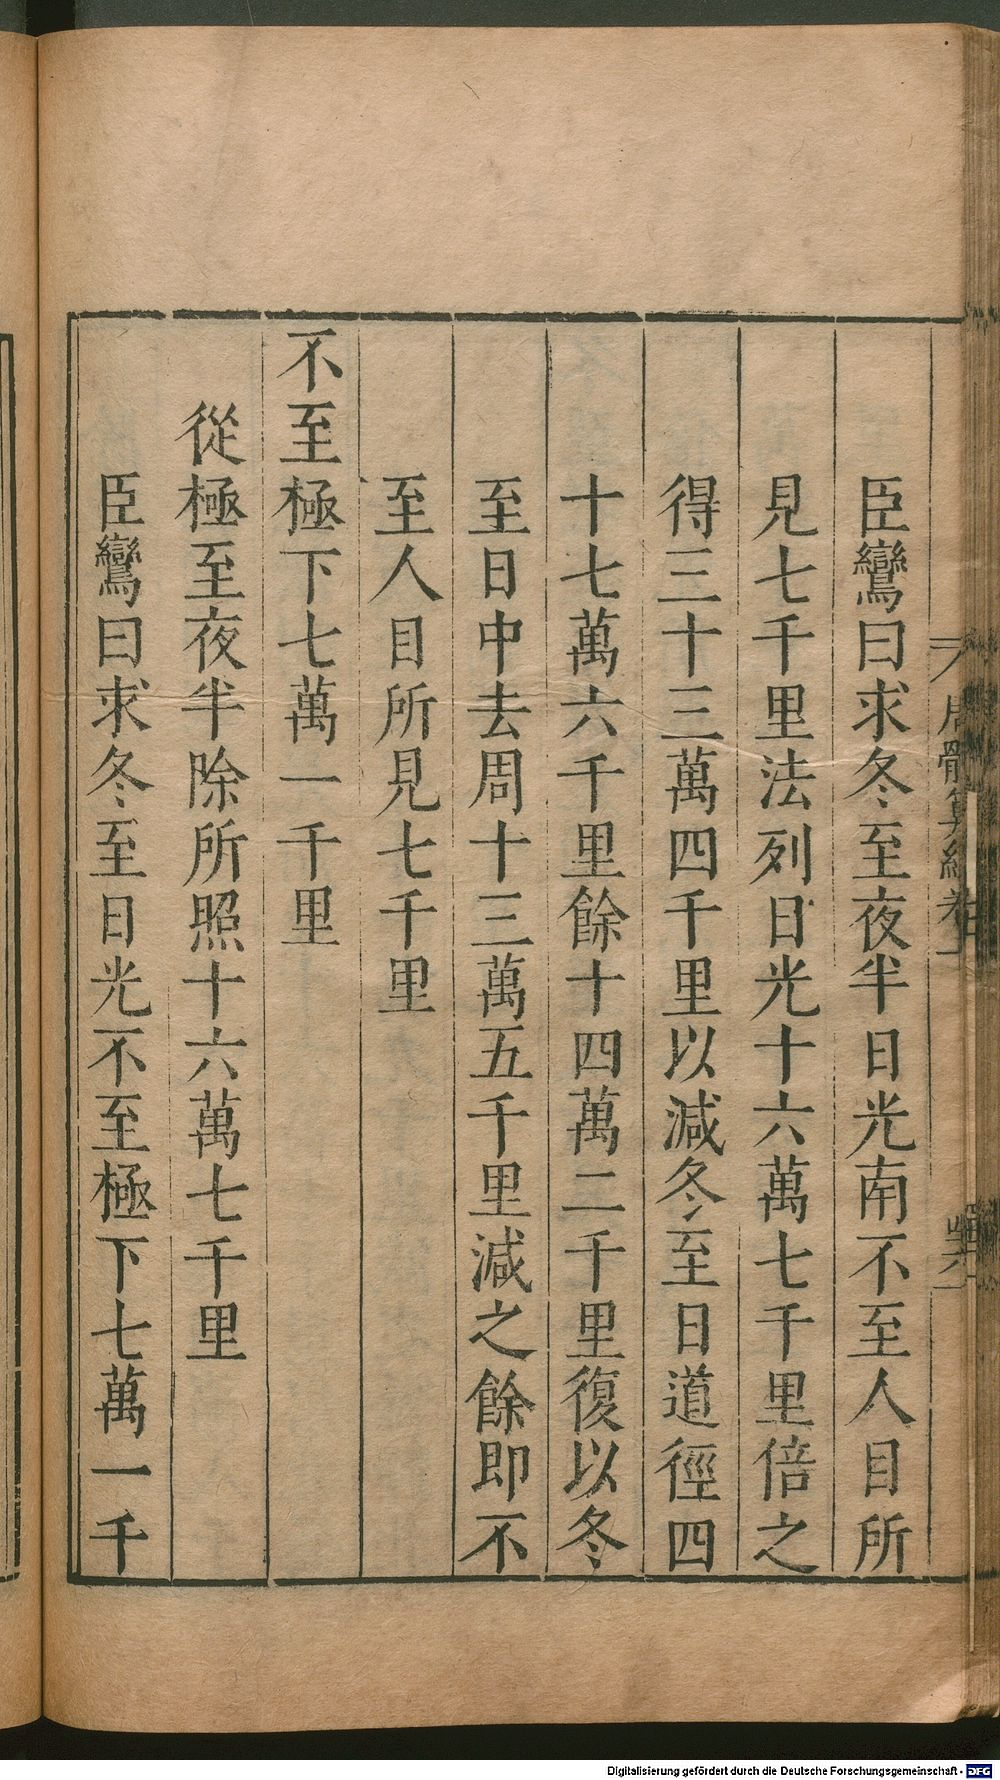 臣鸞曰求冬至夜半日光南不至人目所
見七千里法列日光十六萬七千里倍之
得三十三萬四千里以減冬至日道徑四
十七萬六千里餘十四萬二千里復以冬
至日中去周十三萬五千里減之餘即不
至人目所見七千里
不至極下七萬一千里
從極至夜半除所照十六萬七千里
臣鸞曰求冬至日光不至極下七萬一千
周髀算經卷
Digitalisierung gefördert durch die Deutsche Forschungsgemeinschaft - DFG